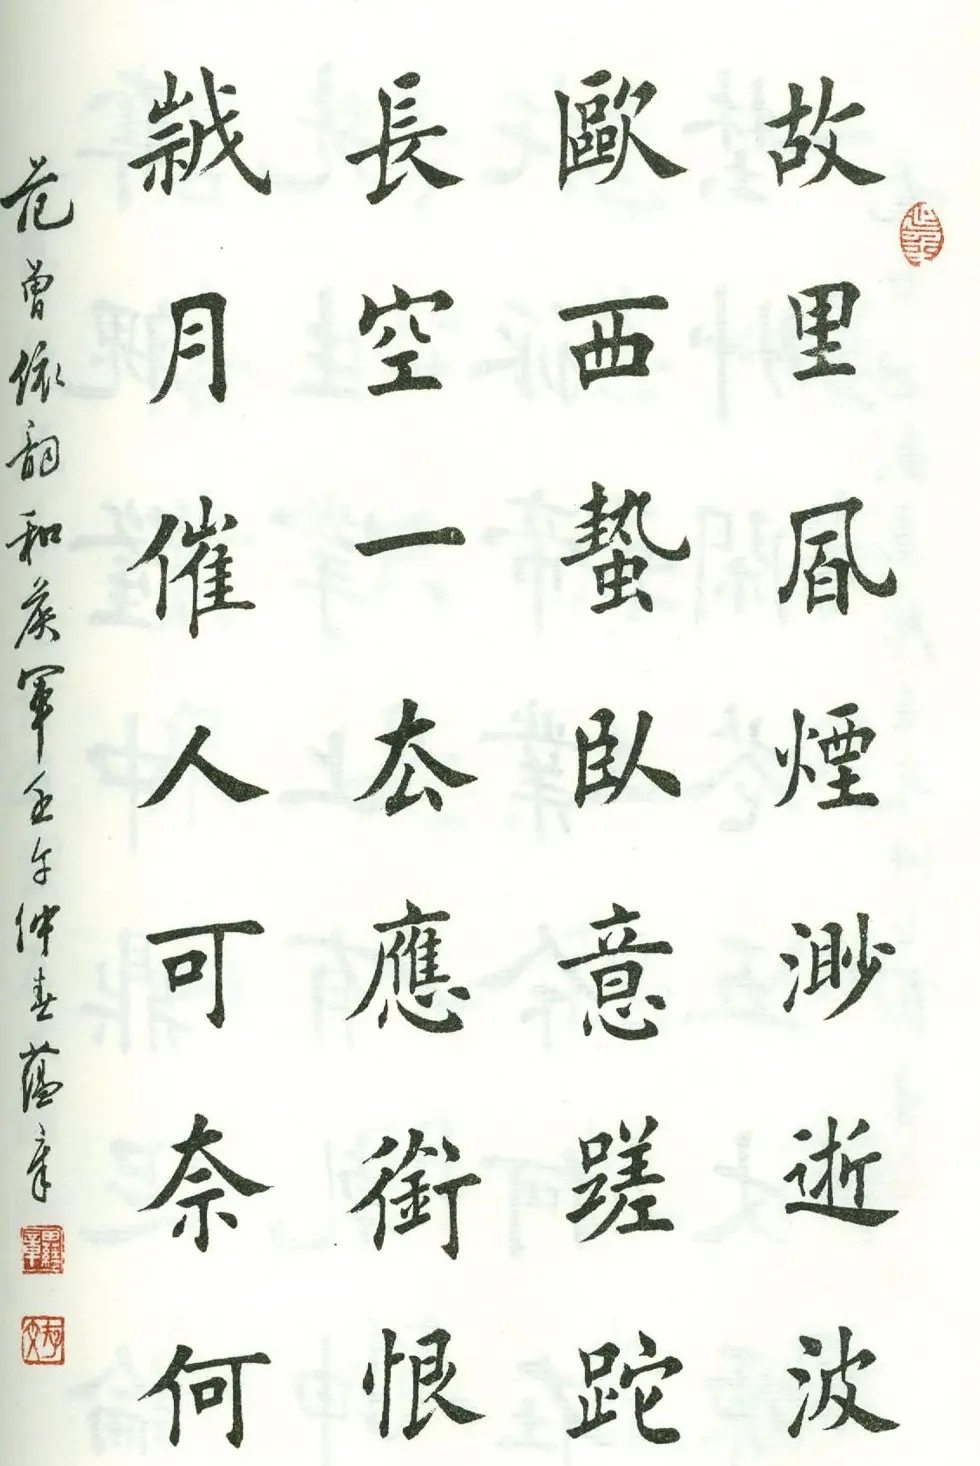 故里凬煙渺逝波
歐西蟄臥意蹉跎
長空一厺應銜恨
歲月催人可奈何
范曾依韵和侯軍壬午仲春蘊章